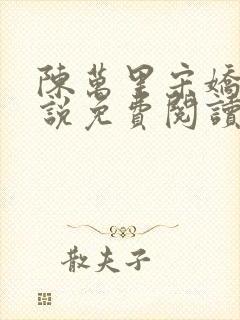 陳萬里宋嬌
說免費閱讀
散夫子